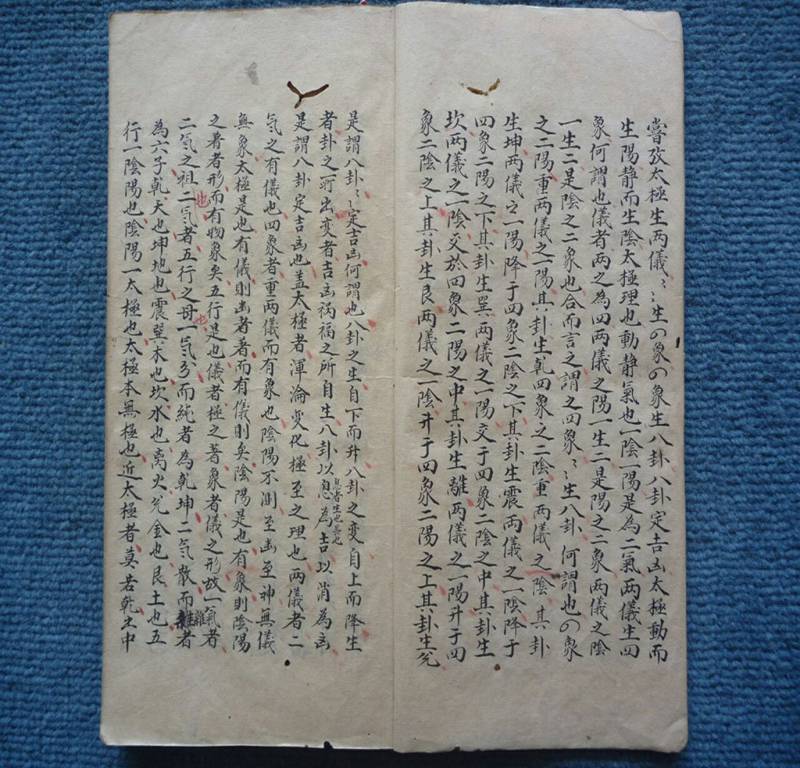 嘗攷太極生兩儀〻生四象四象生八卦八卦定吉凶太極動而
生陽静而生陰太極理也動静氣也一陰一陽是為二氣兩儀生四
象何謂也儀者兩之為四兩儀之陽一生二是陽之二象兩儀之陰
一生二是陰之二象也合而言之謂之四象〻生八卦何謂也四象
之二陽重兩儀之一陽其卦生乾四象之二陰重兩儀之一陰其卦
生坤兩儀之一陽降于四象二陰之下其卦生震兩儀之一陰降于
四象二陽之下其卦生巽兩儀之一陽交于四象二陰之中其卦生
坎兩儀之一陰交於四象二陽之中其卦生離兩儀之一陽升于四
象二陰之上其卦生艮兩儀之一陰升于四象二陽之上其卦生兊
是謂八卦〻定吉凶何謂也八卦之生自下而升八卦之變自上而降生
者卦之所出變者吉凶禍福之所自生八卦以息息者生也長也為吉以消為凶
是謂八卦定吉凶也蓋太極者渾淪變化極至之理也兩儀者二
氣之有儀也四象者重兩儀而有象也陰陽不測至幽至神無儀
無象太極是也有儀則幽者著而有儀則矣陰陽是也有象則陰陽
之著者形而有物象矣五行是也儀者極之著象者儀之形故一氣者
二氣之祖也二氣者五行之母也一氣分而純者為乾坤二氣散而雜者
為六子乾天也坤地也震巽木也坎水也離火兊金也艮土也五
行一陰陽也陰陽一太極也太極本無極也近太極者莫若乾坤中